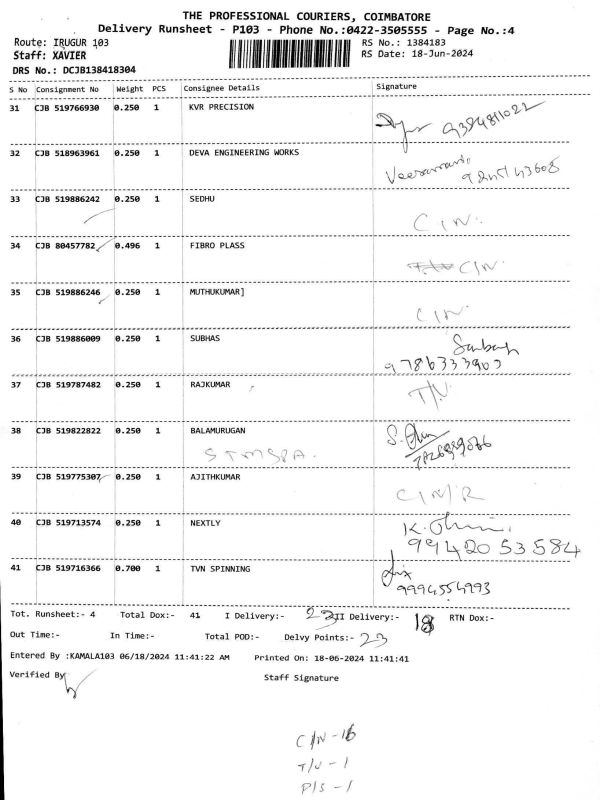 THE PROFESSIONAL COURIERS, COIMBATORE
Delivery Runsheet - P103 - Phone No.:0422-3505555 - Page No.:4
Route: IRUGUR 103 RS No.: 1384183
Staff: XAVIER RS Date: 18-Jun-2024
DRS No.: DCJB138418304
S No Consignment No Weight PCS Consignee Details Signature
31 CJB 519766930 0.250 1 KVR PRECISION
9384811022
32 CJB 518963961 0.250 1 DEVA ENGINEERING WORKS
33 CJB 519886242 0.250 1 SEDHU
C/N.
34 CJB 80457782 0.496 1 FIBRO PLASS
C/N.
35 CJB 519886246 0.250 1 MUTHUKUMAR]
C/N.
36 CJB 519886009 0.250 1 SUBHAS
37 CJB 519787482 0.250 1 RAJKUMAR
T/N.
38 CJB 519822822 0.250 1 BALAMURUGAN
39 CJB 519775307 0.250 1 AJITHKUMAR
C/N/R
40 CJB 519713574 0.250 1 NEXTLY
9942053584
41 CJB 519716366 0.700 1 TVN SPINNING
Tot. Runsheet:- 4 Total Dox:- 41 I Delivery:- 23 II Delivery:- 18 RTN Dox:-
Out Time:- In Time:- Total POD:- Delvy Points:- 23
Entered By :KAMALA103 06/18/2024 11:41:22 AM Printed On: 18-06-2024 11:41:41
Verified By
Staff Signature
C/N - 16
T/N - 1
P/S - 1